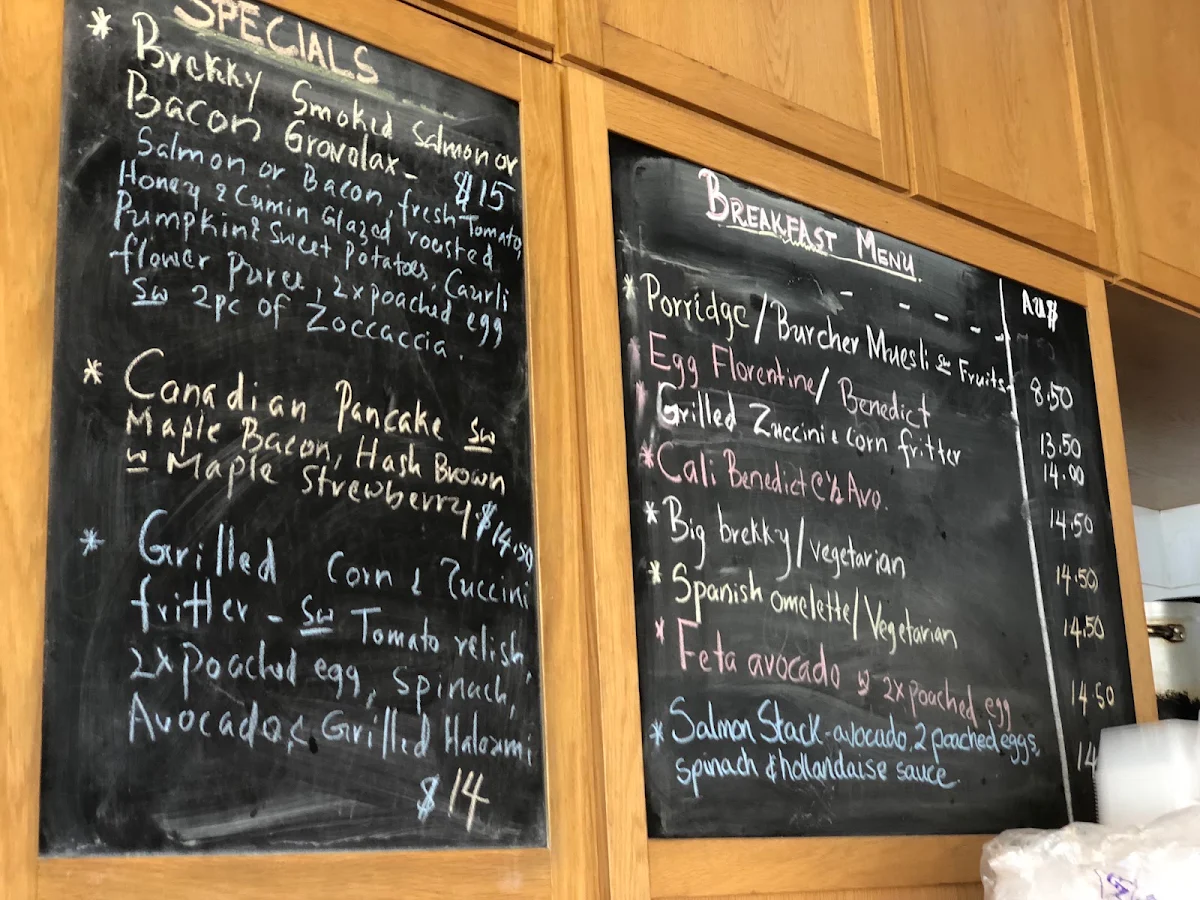 SPECIALS
* Brekky Smoked Salmon or
Bacon Gravalax - $15
Salmon or Bacon, fresh Tomato,
Honey & Cumin Glazed roasted
Pumpkin & sweet potatoes, Caurli
flower puree, 2x poached egg
sw 2pc of Zoccaccia.
* Canadian Pancake sw
Maple Bacon, Hash Brown
w Maple Strewberry. $14.50
* Grilled Corn & Zuccini
fritter - sw Tomato relish,
2x poached egg, spinach,
Avocado, & Grilled Haloumi
$14
BREAKFAST MENU
AU$
* Porridge/Burcher Muesli sw Fruits 8.50
Egg Florentine/Benedict 13.50
Grilled Zuccini & corn fritter 14.00
* Cali Benedict Avo. 14.50
* Big brekky/vegetarian 14.50
* Spanish omelette/Vegetarian 14.50
* Feta avocado w 2x poached egg 14.50
* Salmon Stack-avocado, 2 poached eggs, 14
spinach & hollandaise sauce.